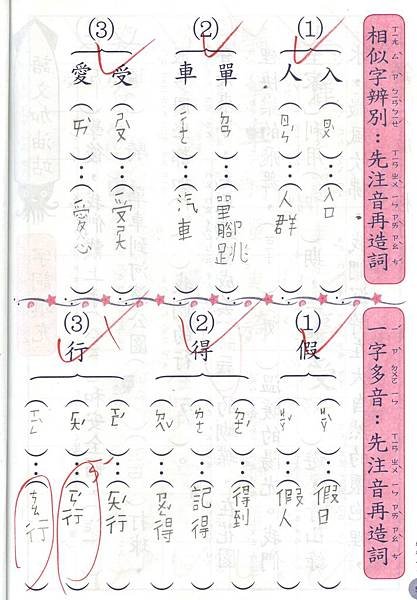 相似字辨別：先注音再造詞
(1)
入（ㄖㄨˋ）：（入口）
人（ㄖㄣˊ）：（人群）
(2)
單（ㄉㄢ）：（單腳跳）
車（ㄔㄜ）：（汽車）
(3)
受（ㄕㄡˋ）：（受天）
愛（ㄞˋ）：（愛心）
一字多音：先注音再造詞
(1)
假
（ㄐㄧㄚˋ）：（假日）
（ㄐㄧㄚˇ）：（假人）
(2)
得
（ㄉㄜˊ）：（得到）
（ㄉㄜ˙）：（記得）
（ㄉㄟˇ）：（ㄋㄢˊ得）
(3)
行
行
行
行